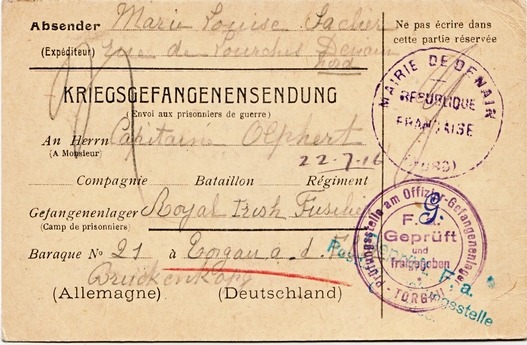 Absender Marie Louise
Ne pas écrire dans
cette partie réservée
(Expéditeur) rue de Lourches Denain
Nord
MAIRIE DE DENAIN
RÉPUBLIQUE
FRANÇAISE
(NORD)
KRIEGSGEFANGENENSENDUNG
(Envoi aux prisonniers de guerre)
An Herrn Capitaine Olphert
(A Monsieur)
22-7-16
Compagnie Bataillon Régiment
Gefangenenlager Royal Irish Fusilier
(Camp de prisonniers)
Prüfungsstelle am Offizier-Gefangenenlager
F. a.
Geprüft
und
freigegeben
TORGAU
Baraque No 21 à Torgau a. d.
F. a.
Brückenkopf
(Allemagne) (Deutschland)